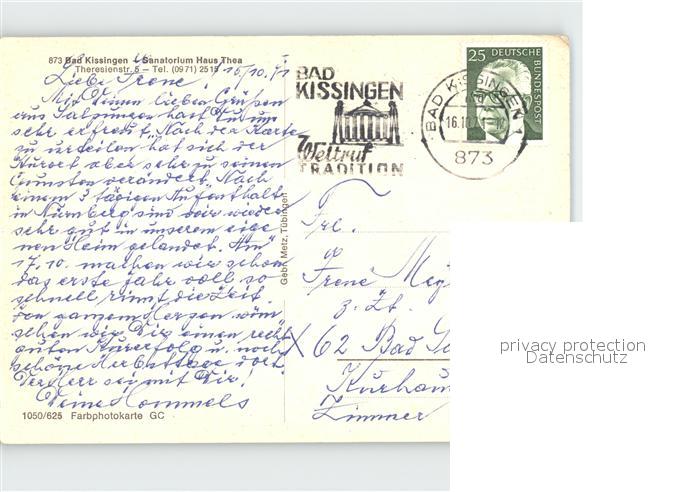 873 Bad Kissingen Sanatorium Haus Thea
Theresienstr. 5 – Tel. (0971) 2515
15/10. 71
Liebe Irene!
Mit Deinen lieben Grüßen
aus hast Du uns
sehr erfreut. Nach der Karte
zu urteilen hat sich der
Kurort aber sehr zu seinen
Gunsten verändert. Nach
einem 3 tägigen Aufenthalt
in Nürnberg sind wir wieder
sehr gut in unserem eige
nen Heim gelandet. Am
17.10. machen wir schon
das erste Jahr voll so
schnell rinnt die Zeit.
Von ganzem Herzen wün
schen wir Dir einen recht
guten Kurerfolg u. noch
schöne Herbsttage dort.
Der Herr sei mit Dir!
Deine Hommels
1050/625 Farbphotokarte GC
Gebr. Metz, Tübingen
BAD
KISSINGEN
Weltruf
TRADITION
BAD KISSINGEN 1
16.10.7
873
25 DEUTSCHE
BUNDESPOST
Frl.
Irene
z. Zt.
62 Bad
Kurhau
Zimmer
privacy protection
Datenschutz